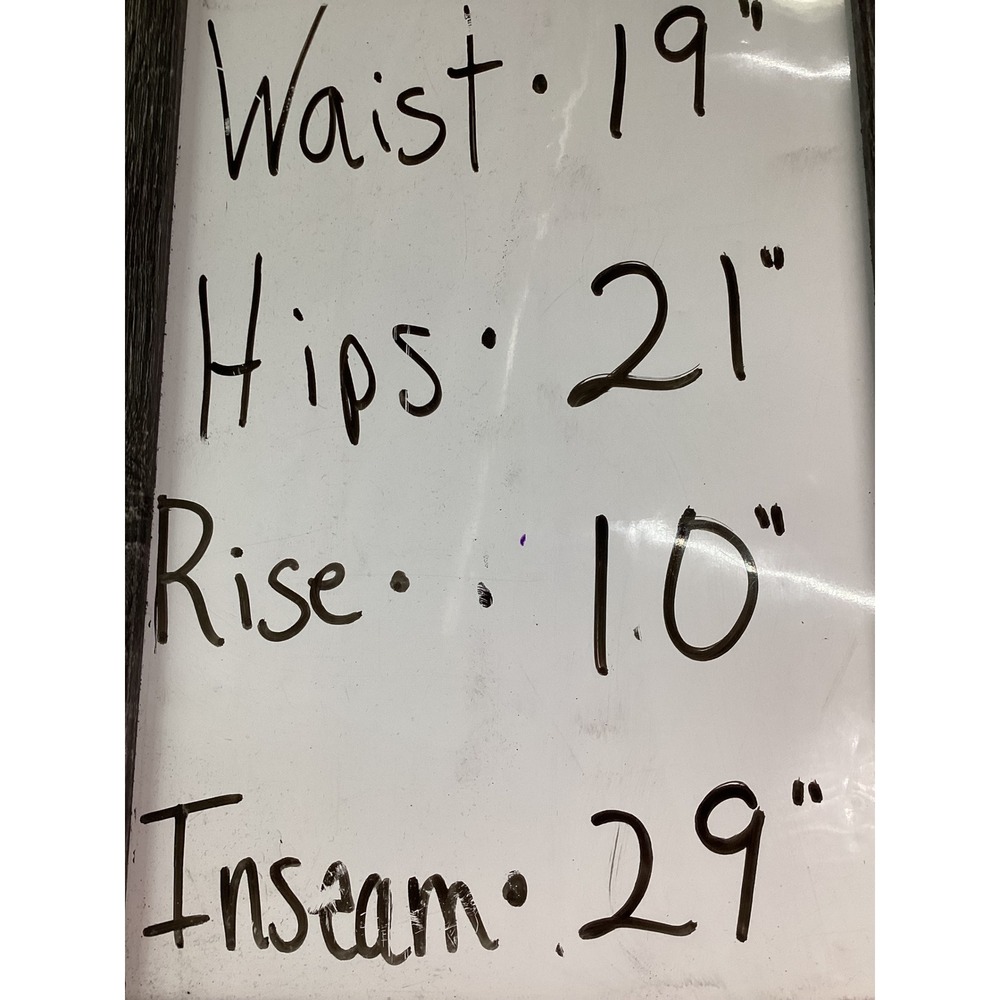 Waist · 19"
Hips · 21"
Rise · 10"
Inseam · 29"